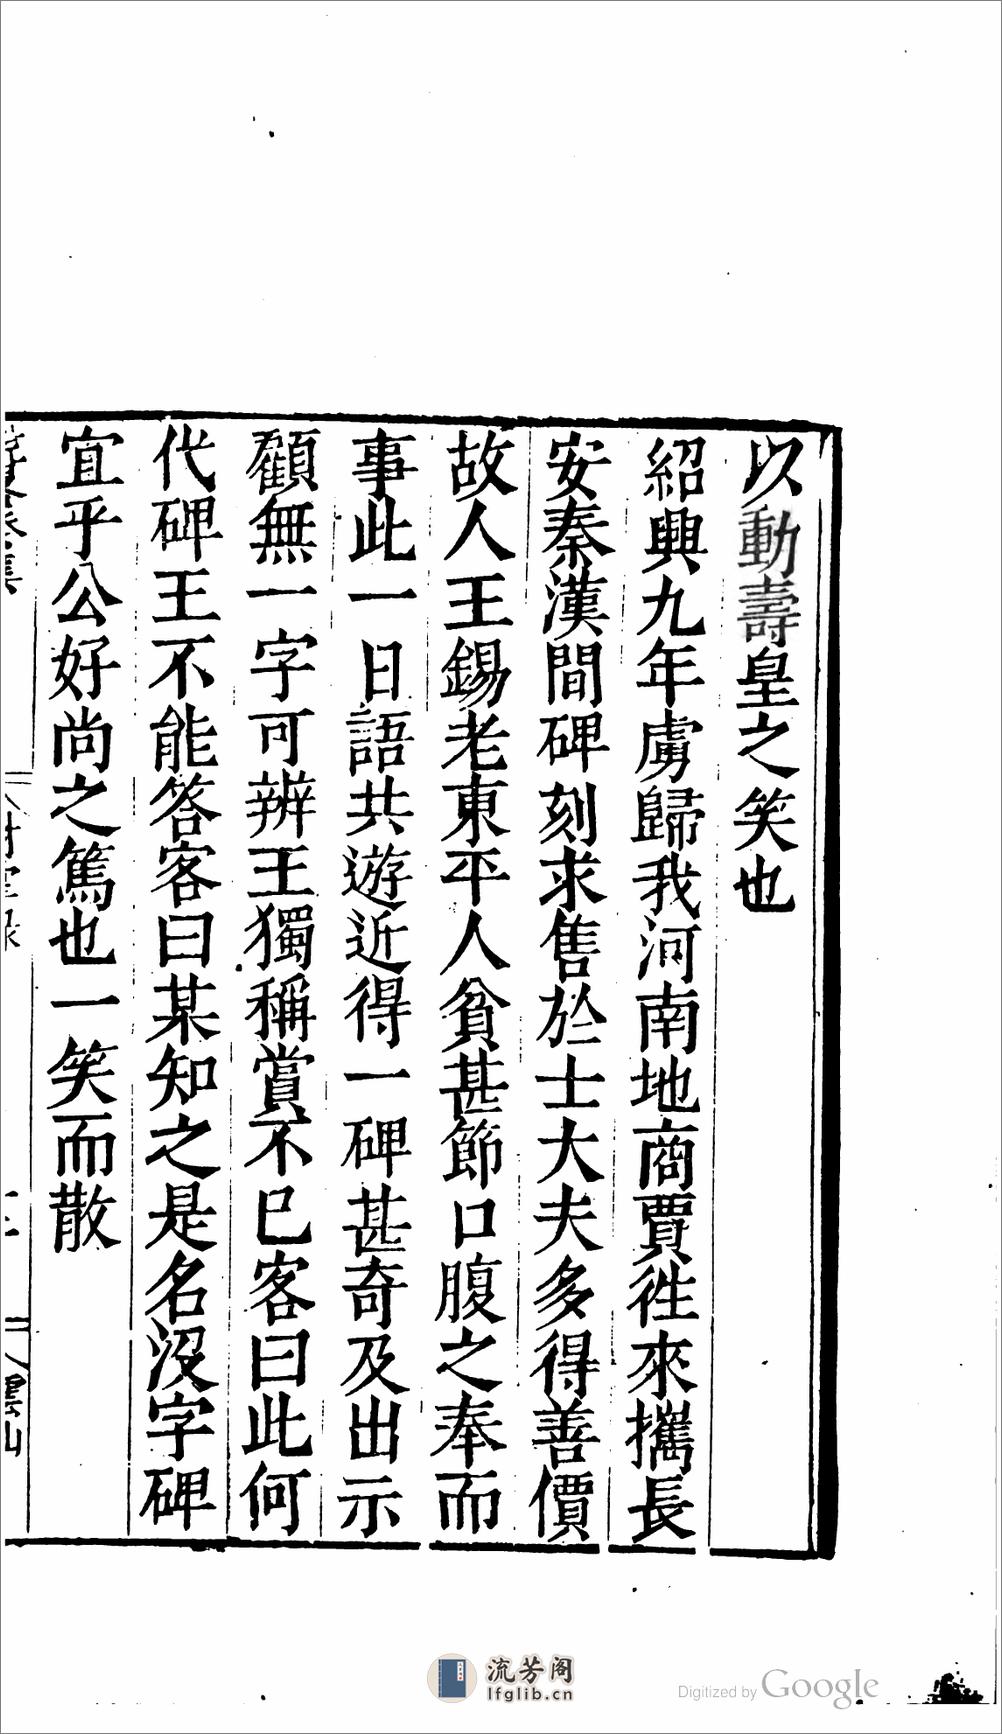 以動壽皇之笑也
紹興九年虜歸我河南地商賈徃來攜長
安秦漢間碑刻求售於士大夫多得善價
故人王錫老東平人貧甚節口腹之奉而
事此一日語共遊近得一碑甚奇及出示
顧無一字可辨王獨稱賞不已客曰此何
代碑王不能答客曰某知之是名沒字碑
宜乎公好尚之篤也一笑而散
雲山
流芳阁
lfglib.cn
Digitized by Google